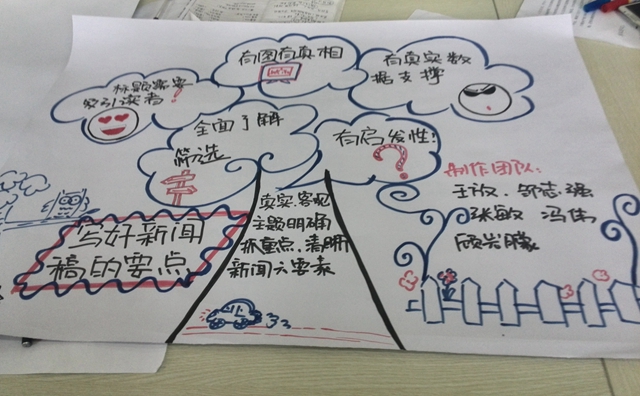 有图有真相
有真实数
据支撑
标题需要
吸引读者!
全面了解
筛选
有启发性!
?
制作团队:
王政、邹志强
张敏 冯伟
真实、客观
主题明确
抓重点、清晰
新闻六要素
写好新闻
稿的要点